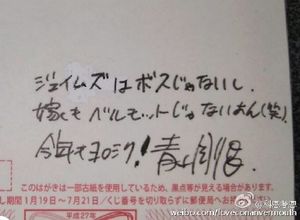 ジェイムズはボスじゃないし、
嫁もベルモットじゃないよん(笑)。
今年もヨロシク! 青山剛昌
このはがきは一部古紙を使用しているため、黒点等が見える場合があります。
し期間1月19日〜7月21日/くじ番号を切り取らずに郵便局へお持ち
平成27年
weibo.com/loveconanvermouth